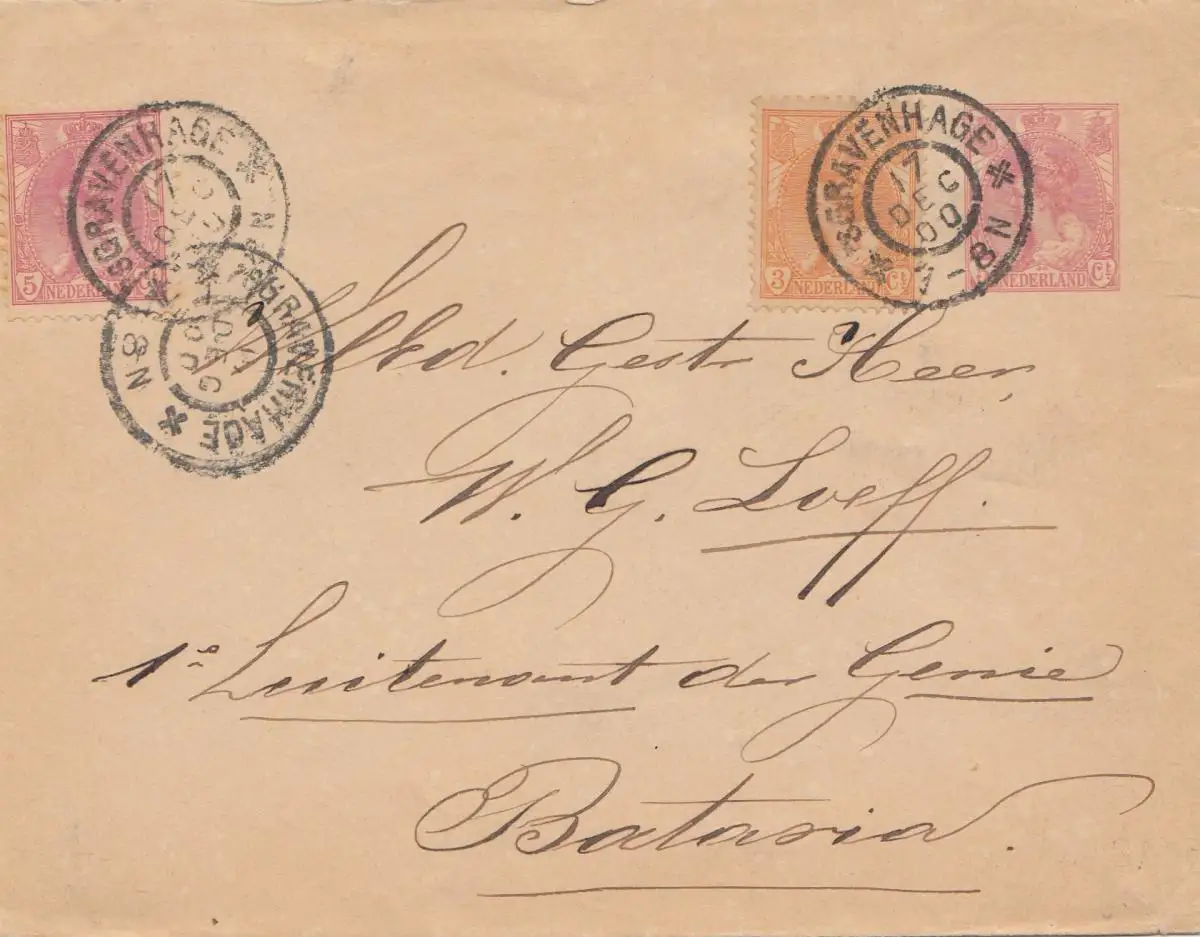 5 NEDERL
'SGRAVENHAGE
'SGRAVENHAGE
17 DEC 00
8N
3 Ct
'SGRAVENHAGE
17
DEC
00
7-8N
NEDERLAND Ct
WelEd. Gestr Heer
W. G. Loeff.
1e Luitenant der Genie
Batavia.